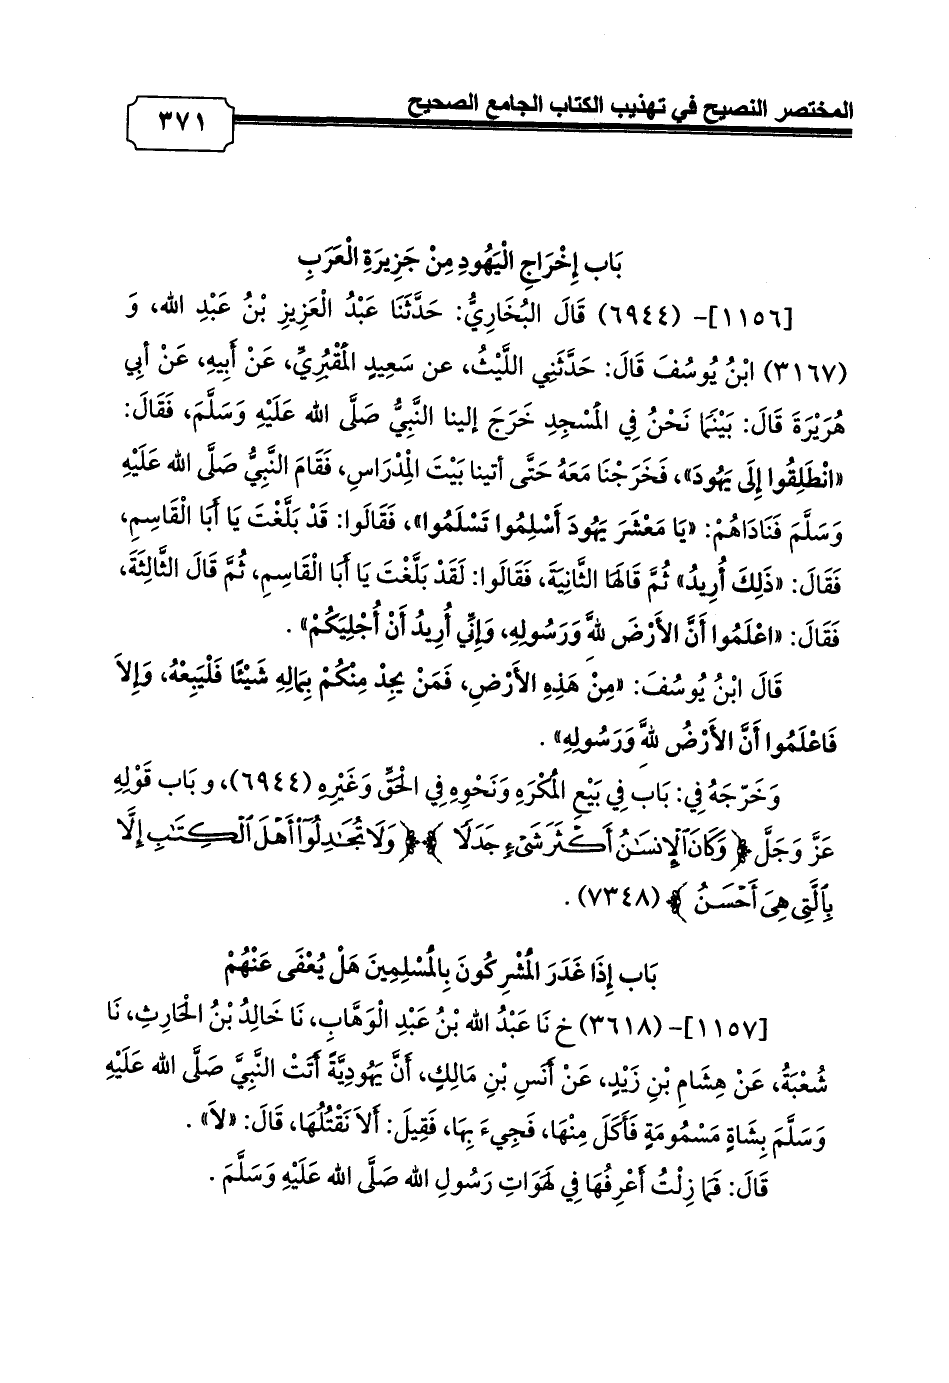 المختصر النصيح في تهذيب الكتاب الجامع الصحيح
٣٧١
بَاب إِخْرَاجِ الْيَهُودِ مِنْ جَزِيرَةِ الْعَرَبِ
[١١٥٦]- (٦٩٤٤) قَالَ البُخَارِيُّ: حَدَّثَنَا عَبْدُ الْعَزِيزِ بْنُ عَبْدِ الله، وَ
(٣١٦٧) ابْنُ يُوسُفَ قَالَ: حَدَّثَنِي اللَّيْثُ، عن سَعِيدٍ الْمَقْبُرِيِّ، عَنْ أَبِيهِ، عَنْ أبِي
هُرَيْرَةَ قَالَ: بَيْنَمَا نَحْنُ فِي الْمَسْجِدِ خَرَجَ إلينا النَّبِيُّ صَلَّى الله عَلَيْهِ وَسَلَّمَ، فَقَالَ:
«انْطَلِقُوا إِلَى يَهُودَ»، فَخَرَجْنَا مَعَهُ حَتَّى أتينا بَيْتَ الْمِدْرَاسِ، فَقَامَ النَّبِيُّ صَلَّى الله عَلَيْهِ
وَسَلَّمَ فَنَادَاهُمْ: «يَا مَعْشَرَ يَهُودَ أَسْلِمُوا تَسْلَمُوا»، فَقَالُوا: قَدْ بَلَّغْتَ يَا أَبَا الْقَاسِمِ،
فَقَالَ: «ذَلِكَ أُرِيدُ» ثُمَّ قَالَهَا الثَّانِيَةَ، فَقَالُوا: لَقَدْ بَلَّغْتَ يَا أَبَا الْقَاسِمِ، ثُمَّ قَالَ الثَّالِثَةَ،
فَقَالَ: «اعْلَمُوا أَنَّ الأَرْضَ للهِ وَرَسُولِهِ، وَإِنِّي أُرِيدُ أَنْ أُجْلِيَكُمْ».
قَالَ ابْنُ يُوسُفَ: «مِنْ هَذِهِ الأَرْضِ، فَمَنْ يجِدْ مِنْكُمْ بِمَالِهِ شَيْئًا فَلْيَبِعْهُ، وَإِلاَ
فَاعْلَمُوا أَنَّ الأَرْضُ للهِ وَرَسُولِهِ».
وَخَرَّجَهُ فِي: بَاب فِي بَيْعِ الْمُكْرَهِ وَنَحْوِهِ فِي الْحَقِّ وَغَيْرِهِ (٦٩٤٤)، و بَاب قَوْلِهِ
عَزَّ وَجَلَّ ﴿وَكَانَ ٱلْإِنسَـٰنُ أَكْثَرَ شَىْءٍ جَدَلًا﴾ ﴿وَلَا تُجَـٰدِلُوٓا۟ أَهْلَ ٱلْكِتَـٰبِ إِلَّا
بِٱلَّتِى هِىَ أَحْسَنُ﴾ (٧٣٤٨).
بَاب إِذَا غَدَرَ الْمُشْرِكُونَ بِالْمُسْلِمِينَ هَلْ يُعْفَى عَنْهُمْ
[١١٥٧]- (٣٦١٨) خ نَا عَبْدُ الله بْنُ عَبْدِ الْوَهَّابِ، نَا خَالِدُ بْنُ الْحَارِثِ، نَا
شُعْبَةُ، عَنْ هِشَامِ بْنِ زَيْدٍ، عَنْ أَنَسِ بْنِ مَالِكٍ، أَنَّ يَهُودِيَّةً أَتَتْ النَّبِيَّ صَلَّى الله عَلَيْهِ
وَسَلَّمَ بِشَاةٍ مَسْمُومَةٍ فَأَكَلَ مِنْهَا، فَجِيءَ بِهَا، فَقِيلَ: أَلاَ نَقْتُلُهَا، قَالَ: «لاَ».
قَالَ: فَمَا زِلْتُ أَعْرِفُهَا فِي لَهَوَاتِ رَسُولِ الله صَلَّى الله عَلَيْهِ وَسَلَّمَ.